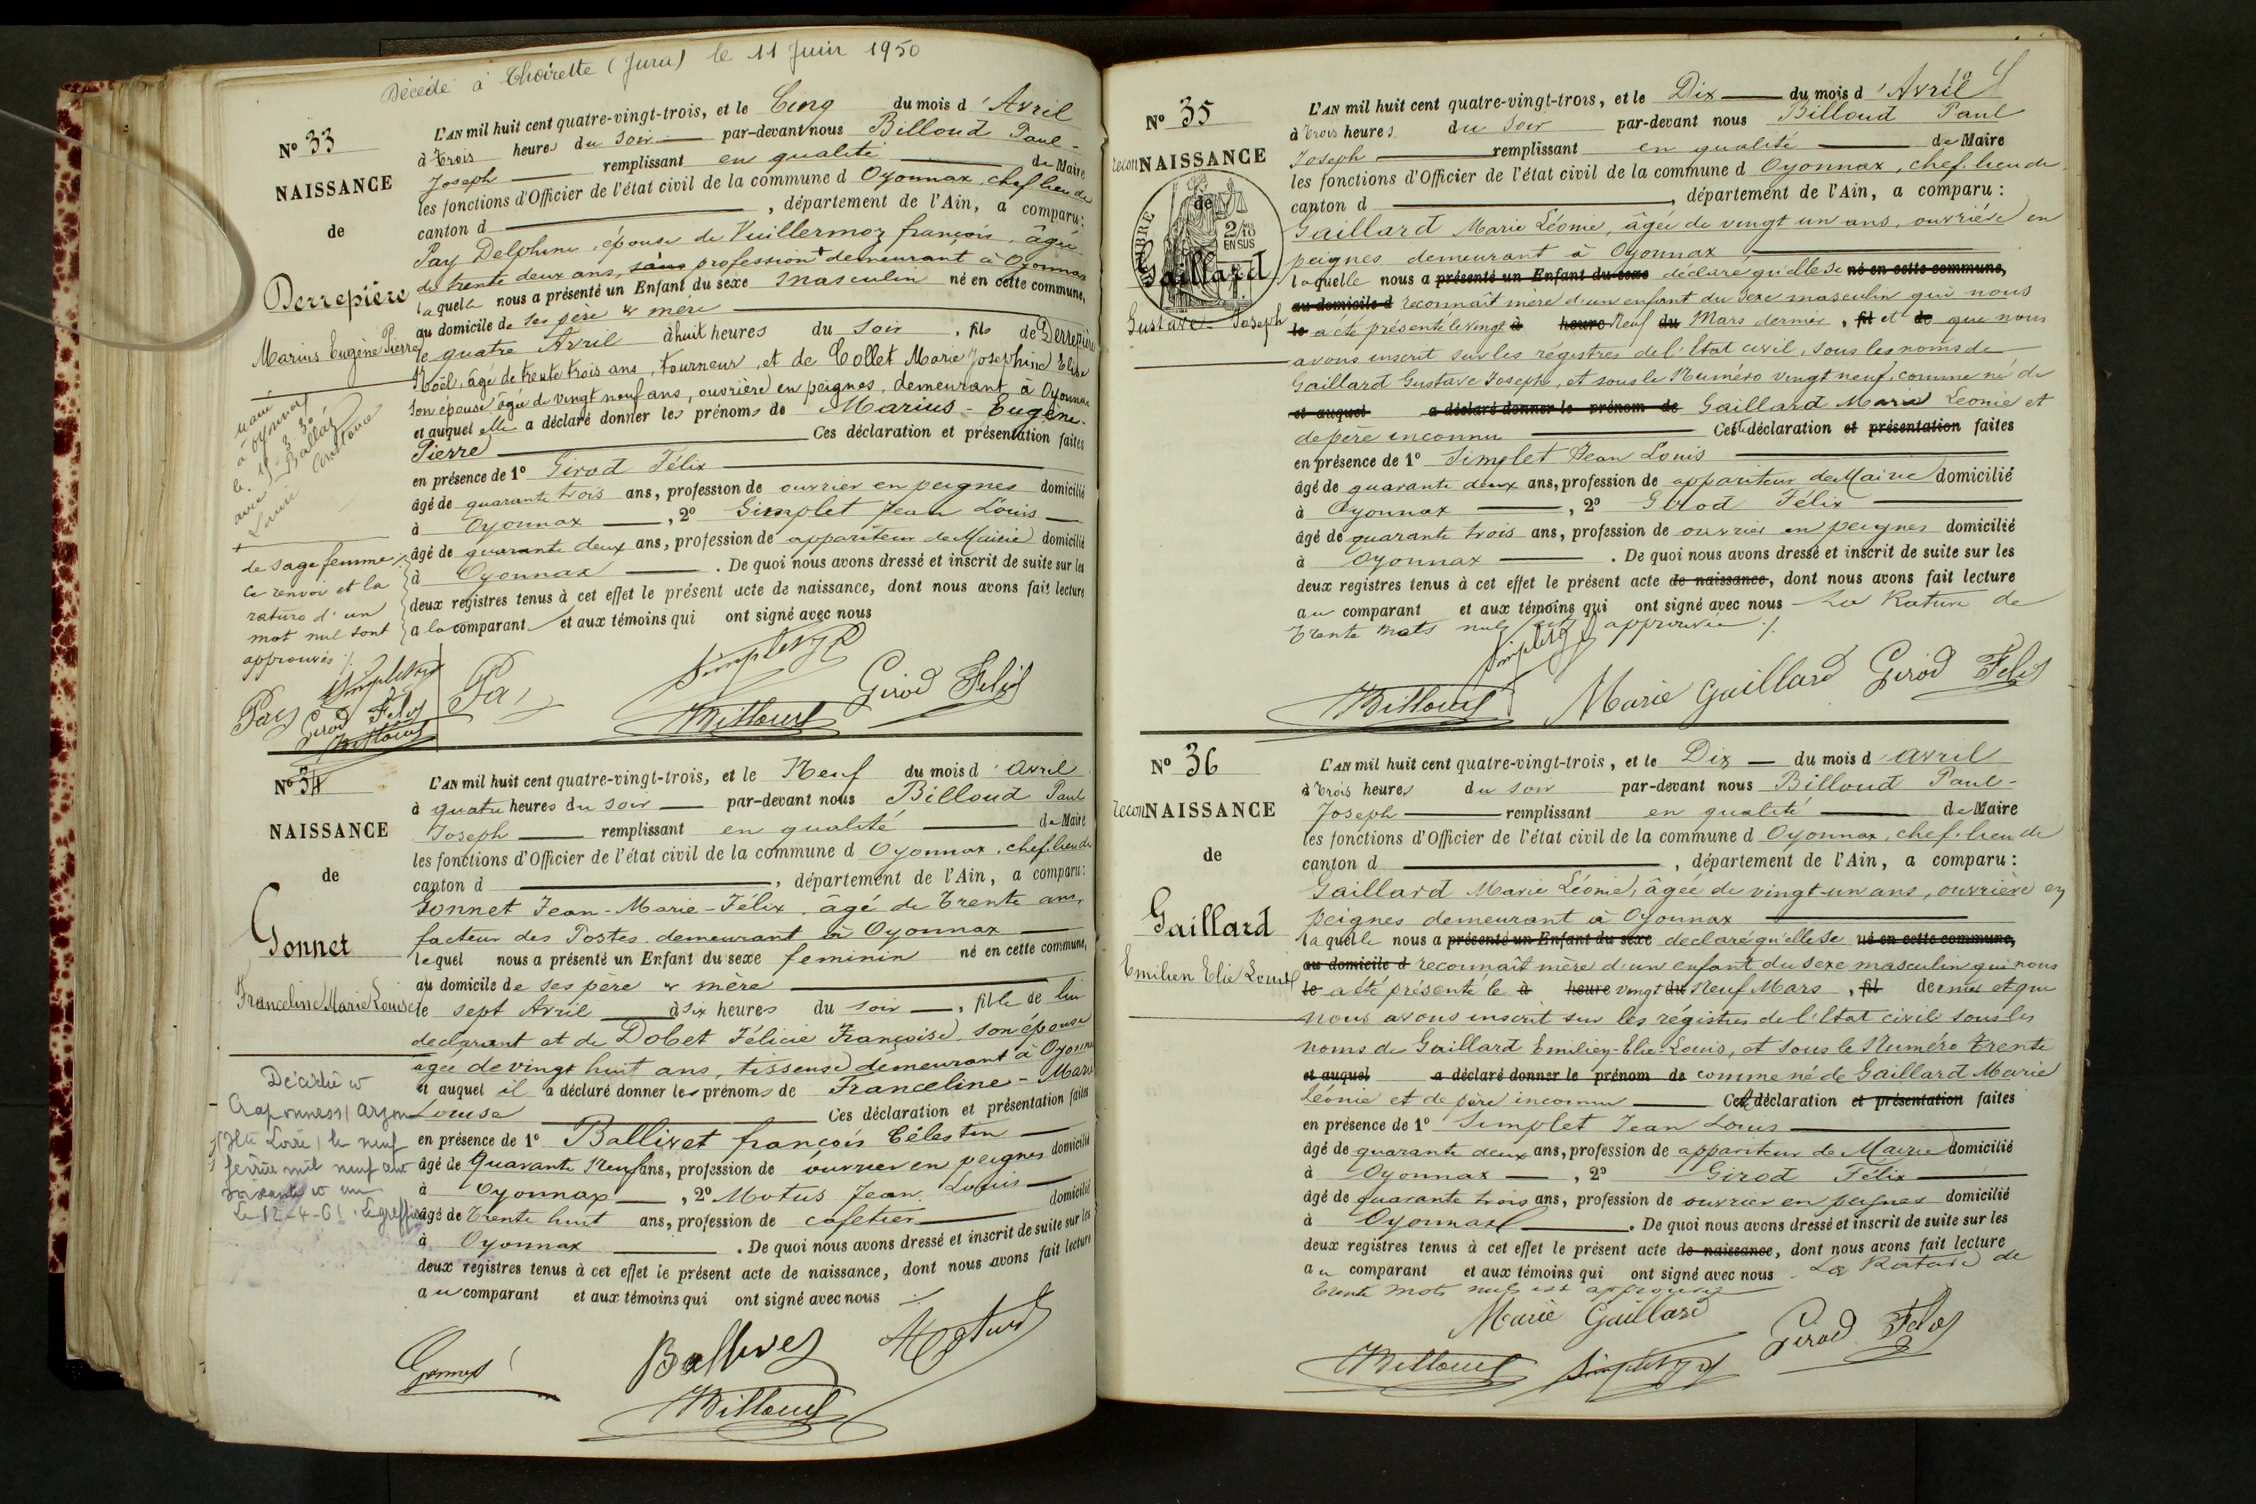 Décédé à Thoirette (Jura) le 11 Juin 1950
N° 33
NAISSANCE
de
Derrepière
Marius Eugène Pierre
marié
à Oyonnax
le
avec Ballaz
Louise Constance
+ de sage femme ./.
Ce renvoi et la
rature d'un
mot nul sont
approuvés ./.
Pay Simplet
Girod Félix
Billoud
L'AN mil huit cent quatre-vingt-trois, et le Cinq du mois d'Avril
à trois heures du Soir par-devant nous Billoud Paul-
Joseph remplissant en qualité de Maire
les fonctions d'Officier de l'état civil de la commune d Oyonnax, chef lieu de
canton d , département de l'Ain, a comparu:
Pay Delphine, épouse de Vuillermoz françois, âgée
de trente deux ans, sans profession + demeurant à Oyonnax
laquelle nous a présenté un Enfant du sexe masculin né en cette commune,
au domicile de ses père & mère
le quatre Avril à huit heures du soir, fils de Derrepière
Noël, âgé de trente trois ans, tourneur, et de Collet Marie Josephine Elise
Son épouse âgée de vingt neuf ans, ouvrière en peignes, demeurant à Oyonnax
et auquel elle a déclaré donner les prénoms de Marius-Eugène-
Pierre Ces déclaration et présentation faites
en présence de 1° Girod Félix
âgé de quarante trois ans, profession de ouvrier en peignes domicilié
à Oyonnax, 2° Simplet Jean Louis
âgé de quarante deux ans, profession de appariteur de Mairie domicilié
à Oyonnax. De quoi nous avons dressé et inscrit de suite sur les
deux registres tenus à cet effet le présent acte de naissance, dont nous avons fait lecture
a la comparante et aux témoins qui ont signé avec nous
Pay Simplet Billoud Girod Félix
N° 34
NAISSANCE
de
Gonnet
Franceline Marie Louise
Décédée à
Craponne s/ Arzon
(Hte Loire) le neuf
février mil neuf cent
soixante et un
Le 12-4-61. Le greffier
L'AN mil huit cent quatre-vingt-trois, et le Neuf du mois d'avril
à quatre heures du soir par-devant nous Billoud Paul
Joseph remplissant en qualité de Maire
les fonctions d'Officier de l'état civil de la commune d Oyonnax, chef lieu de
canton d , département de l'Ain, a comparu:
Gonnet Jean-Marie-Félix, âgé de Trente ans,
facteur des Postes demeurant à Oyonnax
lequel nous a présenté un Enfant du sexe feminin né en cette commune,
au domicile de ses père & mère
le sept Avril à six heures du soir, fille de lui
declarant et de Dobet Félicie Françoise, son épouse
agée de vingt huit ans, tisseuse demeurant à Oyonnax
et auquel il a déclaré donner les prénoms de Franceline-Marie
Louise Ces déclaration et présentation faites
en présence de 1° Ballivet françois Célestin
âgé de Quarante Neuf ans, profession de ouvrier en peignes domicilié
à Oyonnax, 2° Motus Jean Louis
âgé de Trente huit ans, profession de cafetier domicilié
à Oyonnax. De quoi nous avons dressé et inscrit de suite sur les
deux registres tenus à cet effet le présent acte de naissance, dont nous avons fait lecture
au comparant et aux témoins qui ont signé avec nous ./.
Gonnet Ballivet Motus
Billoud
N° 35
reconNAISSANCE
de
TIMBRE
2/10 EN SUS
Gaillard
Gustave-Joseph
L'AN mil huit cent quatre-vingt-trois, et le Dix du mois d'Avril
à trois heures du Soir par-devant nous Billoud Paul
Joseph remplissant en qualité de Maire
les fonctions d'Officier de l'état civil de la commune d Oyonnax, chef-lieu de
canton d , département de l'Ain, a comparu:
Gaillard Marie Léonie, âgée de vingt un ans, ouvrière en
peignes demeurant à Oyonnax
laquelle nous a présenté un Enfant du sexe déclaré qu'elle se né en cette commune,
au domicile d reconnaît mère d'un enfant du sexe masculin qui nous
le a été présenté le vingt à heure Neuf du Mars dernier, fil et de que nous
avons inscrit sur les régistres de l'Etat civil, sous les noms de
Gaillard Gustave Joseph, et sous le Numéro vingt neuf, comme né de
et auquel a déclaré donner le prénom de Gaillard Marie Léonie et
de père inconnu Cette déclaration et présentation faites
en présence de 1° Simplet Jean Louis
âgé de quarante deux ans, profession de appariteur de Mairie domicilié
à Oyonnax, 2° Girod Félix
âgé de quarante trois ans, profession de ouvrier en peignes domicilié
à Oyonnax. De quoi nous avons dressé et inscrit de suite sur les
deux registres tenus à cet effet le présent acte de naissance, dont nous avons fait lecture
au comparant et aux témoins qui ont signé avec nous La Rature de
trente mots nuls est approuvée ./.
Billoud Simplet Marie Gaillard Girod Félix
N° 36
reconNAISSANCE
de
Gaillard
Emilien Elie Louis
L'AN mil huit cent quatre-vingt-trois, et le Dix du mois d'avril
à trois heures du soir par-devant nous Billoud Paul-
Joseph remplissant en qualité de Maire
les fonctions d'Officier de l'état civil de la commune d Oyonnax, chef-lieu de
canton d , département de l'Ain, a comparu:
Gaillard Marie Léonie, âgée de vingt-un ans, ouvrière en
peignes demeurant à Oyonnax
laquelle nous a présenté un Enfant du sexe declaré qu'elle se né en cette commune,
au domicile d reconnaît mère d'un enfant du sexe masculin qui nous
le a été présenté le à heure vingt du Neuf Mars, fil dernier et que
nous avons inscrit sur les régistres de l'Etat civil sous les
noms de Gaillard Emilien-Elie-Louis, et sous le Numéro trente
et auquel a déclaré donner le prénom de comme né de Gaillard Marie
Léonie et de père inconnu Cette déclaration et présentation faites
en présence de 1° Simplet Jean Louis
âgé de quarante deux ans, profession de appariteur de Mairie domicilié
à Oyonnax, 2° Girod Félix
âgé de quarante trois ans, profession de ouvrier en peignes domicilié
à Oyonnax. De quoi nous avons dressé et inscrit de suite sur les
deux registres tenus à cet effet le présent acte de naissance, dont nous avons fait lecture
au comparant et aux témoins qui ont signé avec nous. La Rature de
trente mots nuls est approuvée
Marie Gaillard
Billoud Simplet Girod Félix